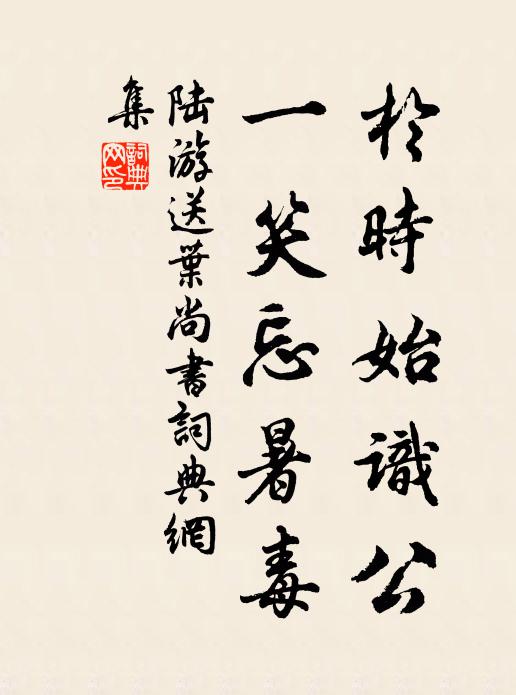 於時始識公
一笑忘暑毒
陸游送葉尚書詞典網
集
詞典
网印